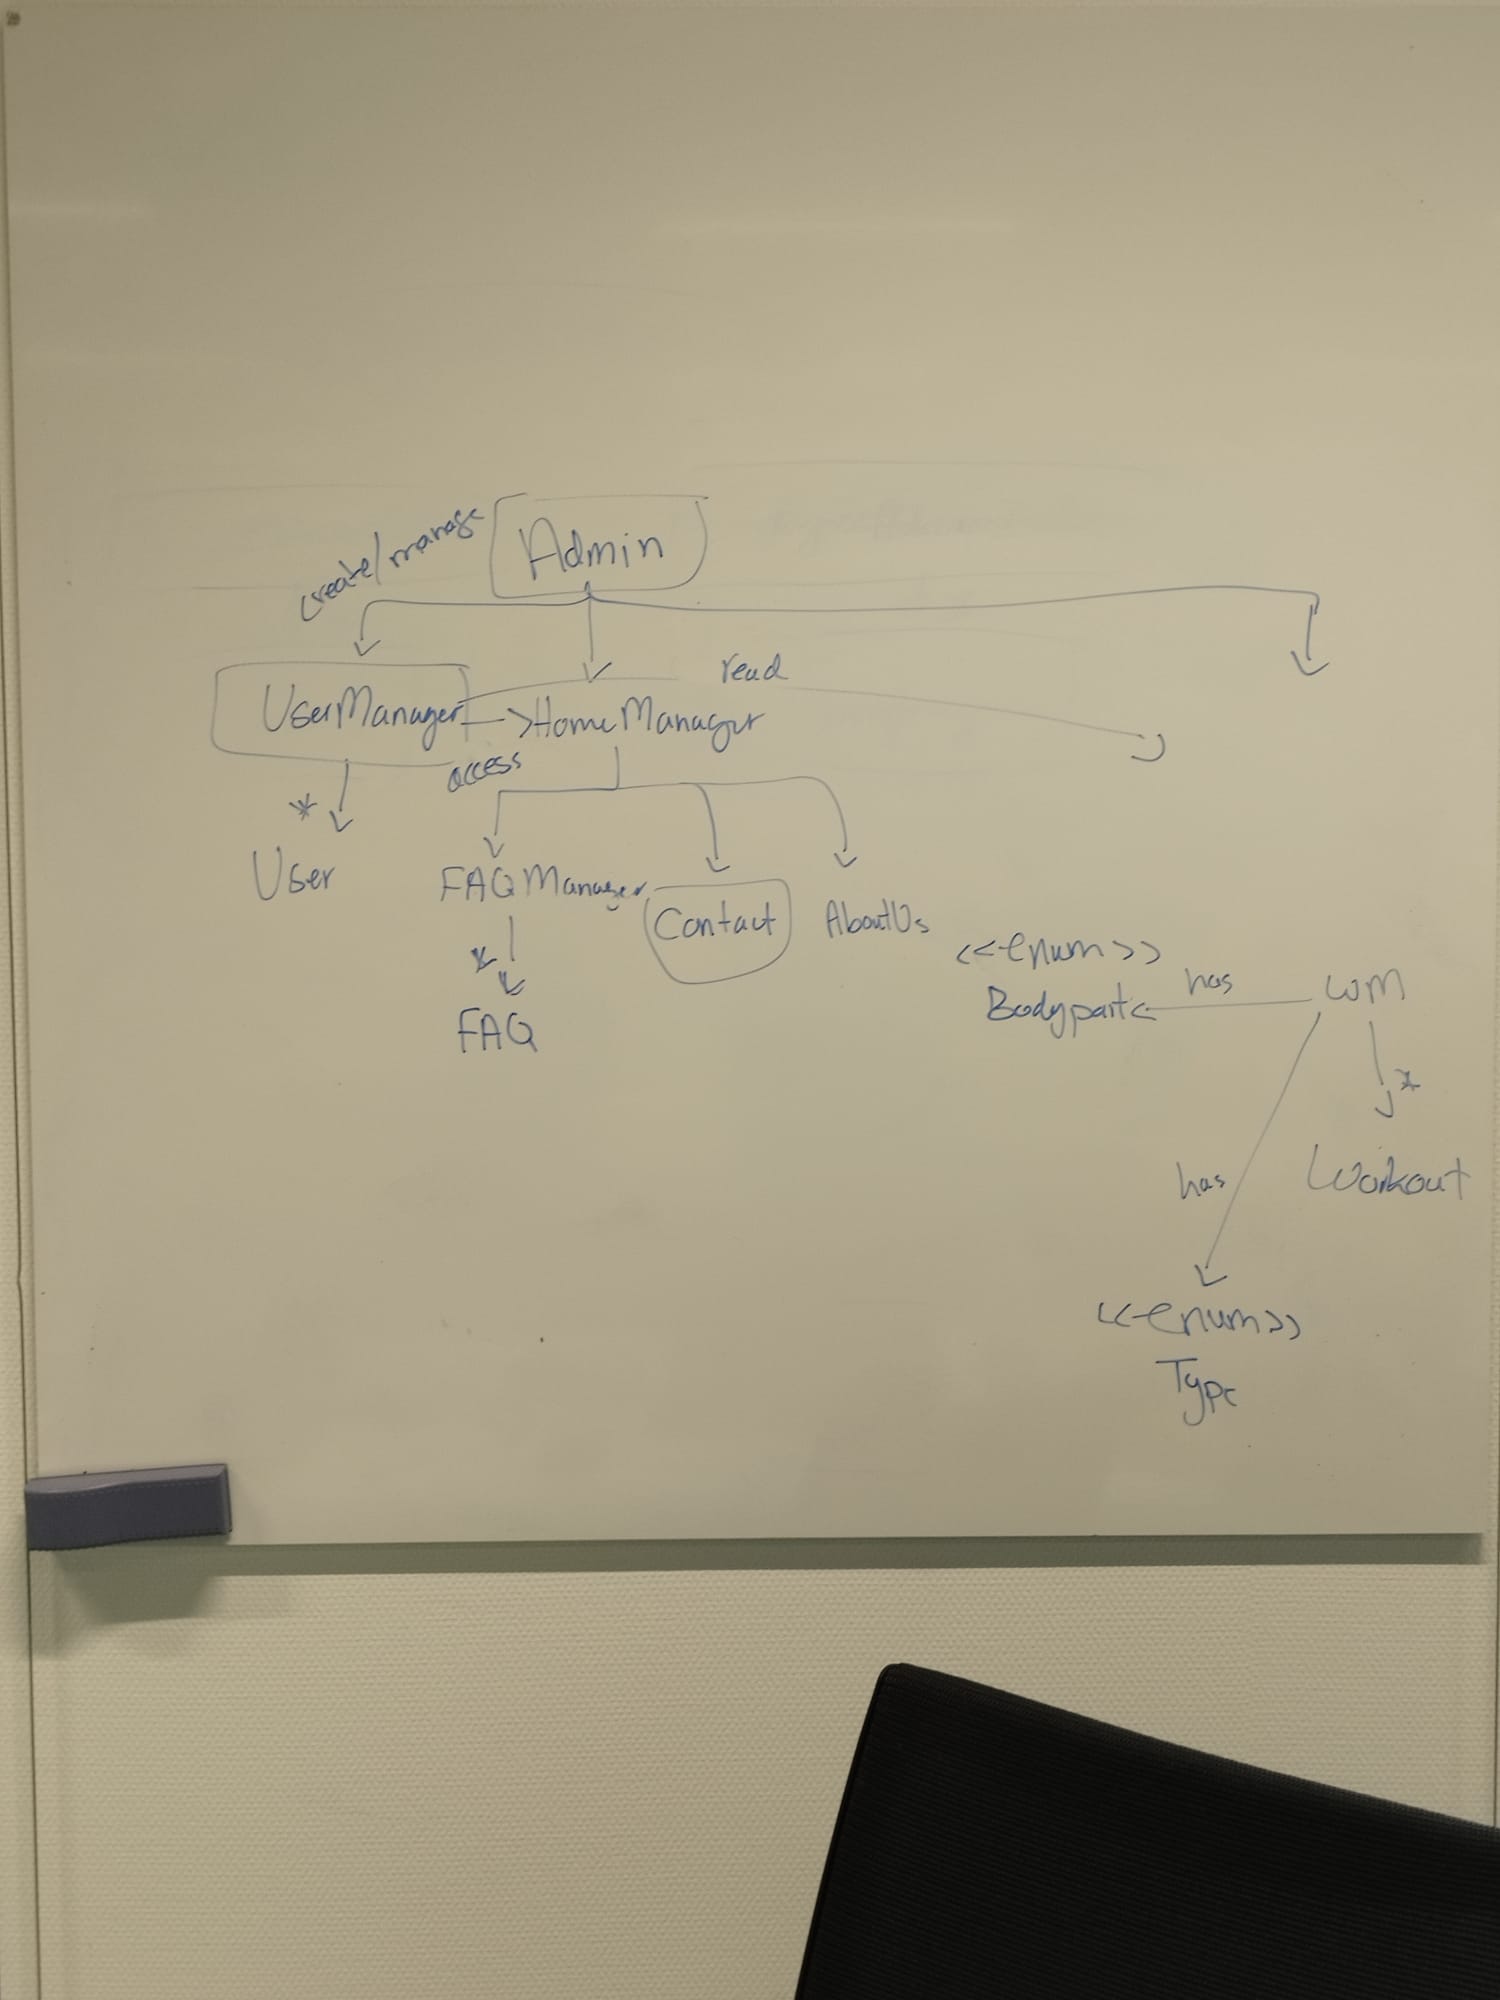 create/manage
Admin
read
UserManager
HomeManager
access
*
User
FAQManager
Contact
AboutUs
*
FAQ
<<enum>>
Bodypart
has
WM
*
has
Workout
<<enum>>
Type